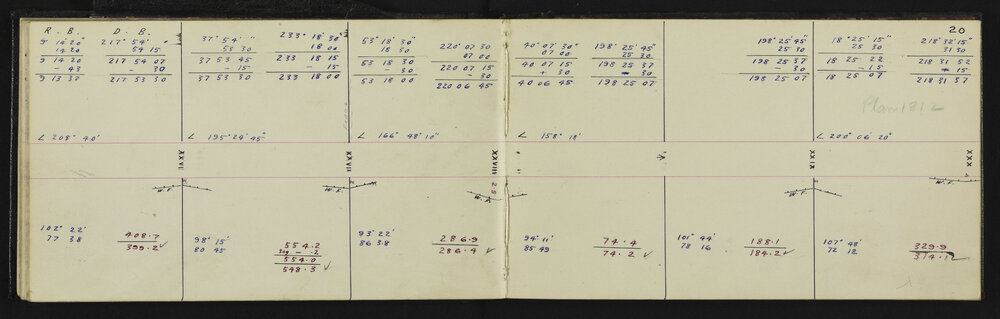 20
R. B. D. B.
9 14 20" 217° 54' "
14 20 54 15
9 14 20 217 54 07
- 43 - 30
9 13 37 217 53 30
∠ 208° 40'
37° 54' "
53 30
37 53 45
- 15
37 53 30
233° 18' 30"
18 00
233 18 15
- 15
233 18 00
∠ 195° 24' 45"
53° 18' 30"
18 30
53 18 30
- 30
53 18 00
220 07 30
07 00
220 07 15
- 30
220 06 45
∠ 166° 48' 10"
40° 07' 30"
07 00
40 07 15
+ 30
40 06 45
198° 25' 45"
25 30
198 25 37
- 30
198 25 07
∠ 158° 18'
198° 25' 45"
25 30
198 25 37
- 30
198 25 07
18° 25' 15"
25 30
18 25 22
- 15
18 25 07
218° 32' 15"
31 30
218 31 52
- 15
218 31 37
Plan 1812
∠ 200° 06' 20"
XXVII
XXVIII
XXIX
XXX
W. F.
W. F.
2.5
W. A.
W. F.
W. F.
102° 22'
77 38
408.7
399.2 ✓
98° 15'
80 45
554.2
- .2
554.0
548.3 ✓
93° 22'
86 38
286.9
286.4 ✓
94° 11'
85 49
74.4
74.2 ✓
101° 44'
78 16
188.1
184.2 ✓
107° 48'
72 12
329.9
314.1 ✓